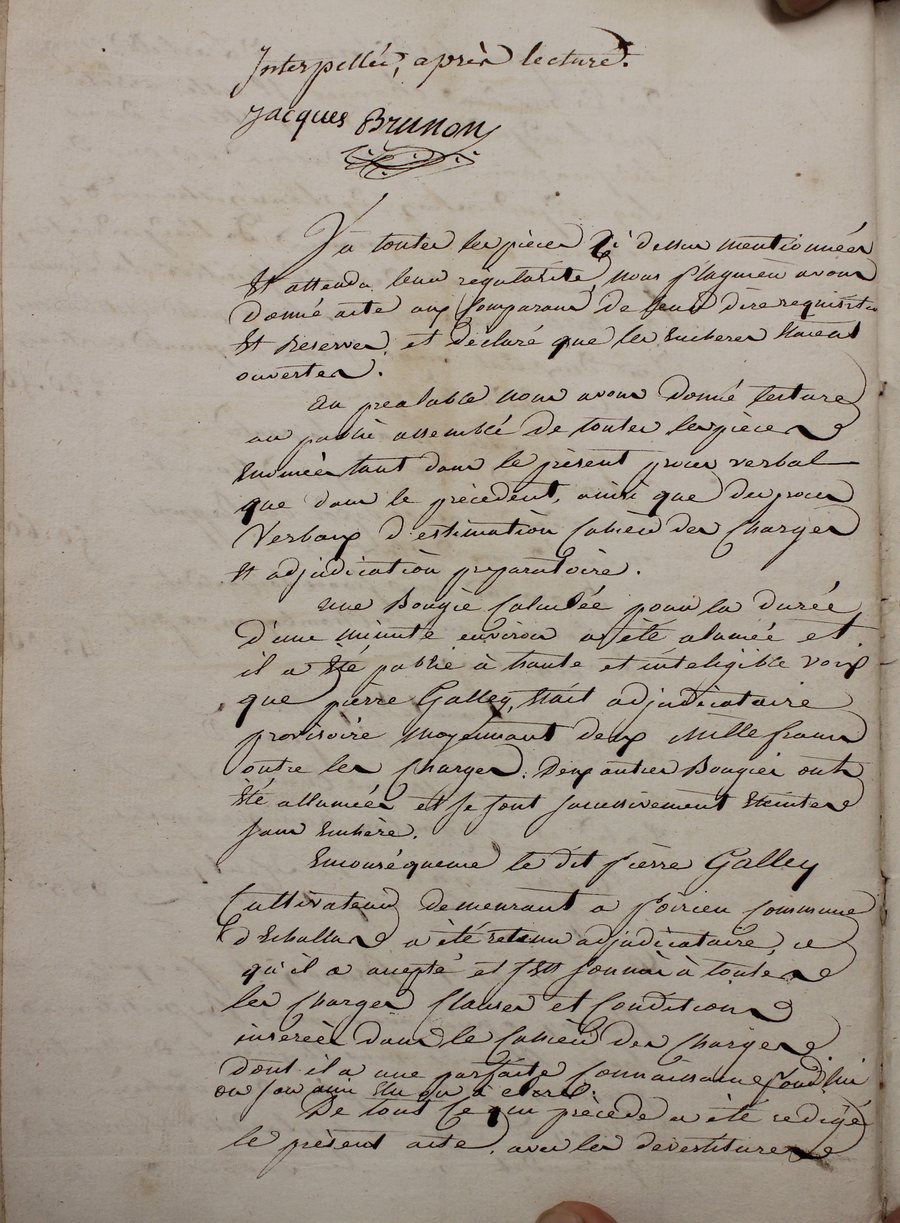 Interpellée, après lecture.
Jacques Brunon
Vu toutes les pièces ci dessus mentionnées
Et attendu leur regularité, nous flaguieu avons
donné acte aux Comparans de leurs dire requisitio
Et Reserves, et déclaré que les Encheres Etaient
ouvertes.
Au prealable nous avons donné lecture
au public assemblé de toutes les pièces
Enoncées tant dans le présent proces verbal
que dans le précedent, ainsi que des proces
Verbaux d'estimation Cahier des Charges
Et adjudication préparatoire.
une Bougie Calculée pour la durée
D'une minute environ a été alumée et
il a Eté publié à haute et inteligible voix
que pièrre Galley, Etait adjudicataire
provisoire moyennant deux Mille francs
outre les Charges. Deux autres Bougies ont
Eté allumées et se sont successivement Eteintes
sans Enchère.
En conséquence le dit Pièrre Galley
Cultivateur demeurant a Poirieu Commune
d'Echallas a été retenu adjudicataire, ce
qu'il a accepté et s'est soumis à toutes
les Charges Clauses et Conditions
inserées dans le Cahier des Charges
dont il a une parfaite Connaissance pour lui
ou son ami Elu ou à
De tout Ce que précède a été redigé
le présent acte, avec les devestitures